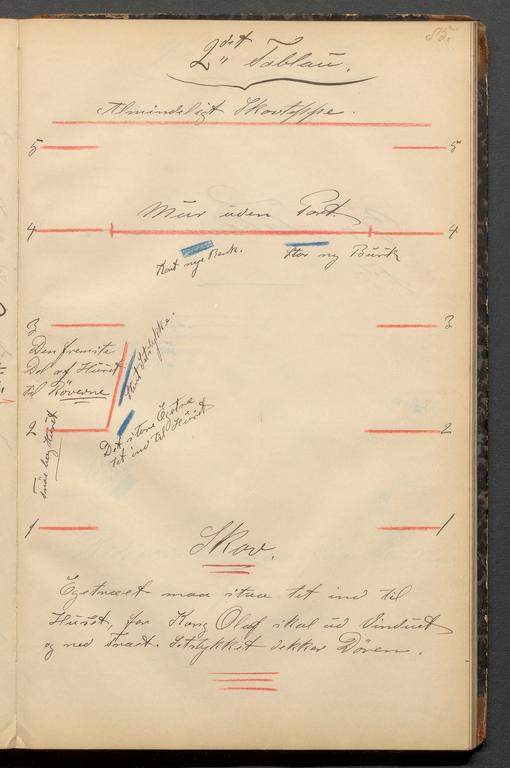 85.
2det Tablau.
Almindeligt Skovteppe.
5 5
Mur uden Port
4 4
Kort nye Bænk. Stor ny Busk
3 3
Den fremste
Del af Huset
til Röverne
Kort Setstykke.
2 2
Det store Egetræ
tet ind til Huset
Træ bag Huset
1 1
Skov.
Egetræet maa staa tet ind til
Huset, for Kong Olaf skal ud Vinduet
og ned Træet. Setstykket dekker Dören.